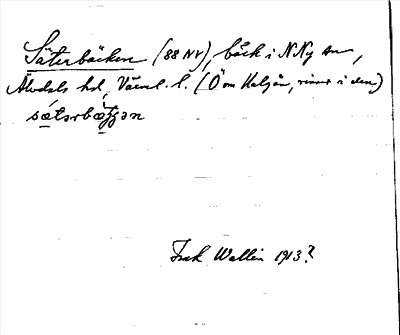 Säterbäcken (88 NV), bäck i N Ny sn,
Älvdals hd, Värml. l. (Ö om Haljån, rinner i den)
sǽtərbæ̀ƫƫən
Frök Wallin 1913?